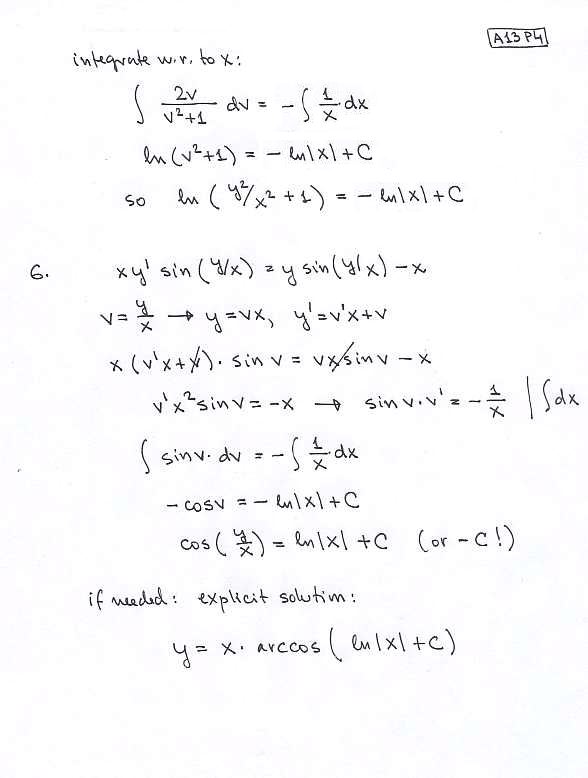 A13 P4
integrate w.r. to x:
∫ 2v/(v²+1) dv = -∫ 1/x dx
ln(v²+1) = - ln|x| + C
so ln (y²/x² + 1) = - ln|x| + C
6. xy' sin(y/x) = y sin(y/x) - x
v = y/x → y = vx, y' = v'x + v
x (v'x + v) · sin v = vx sin v - x
v'x² sin v = -x → sin v · v' = - 1/x | ∫dx
∫ sin v · dv = -∫ 1/x · dx
- cos v = - ln|x| + C
cos(y/x) = ln|x| + C (or - C!)
if needed: explicit solution:
y = x · arccos( ln|x| + C)